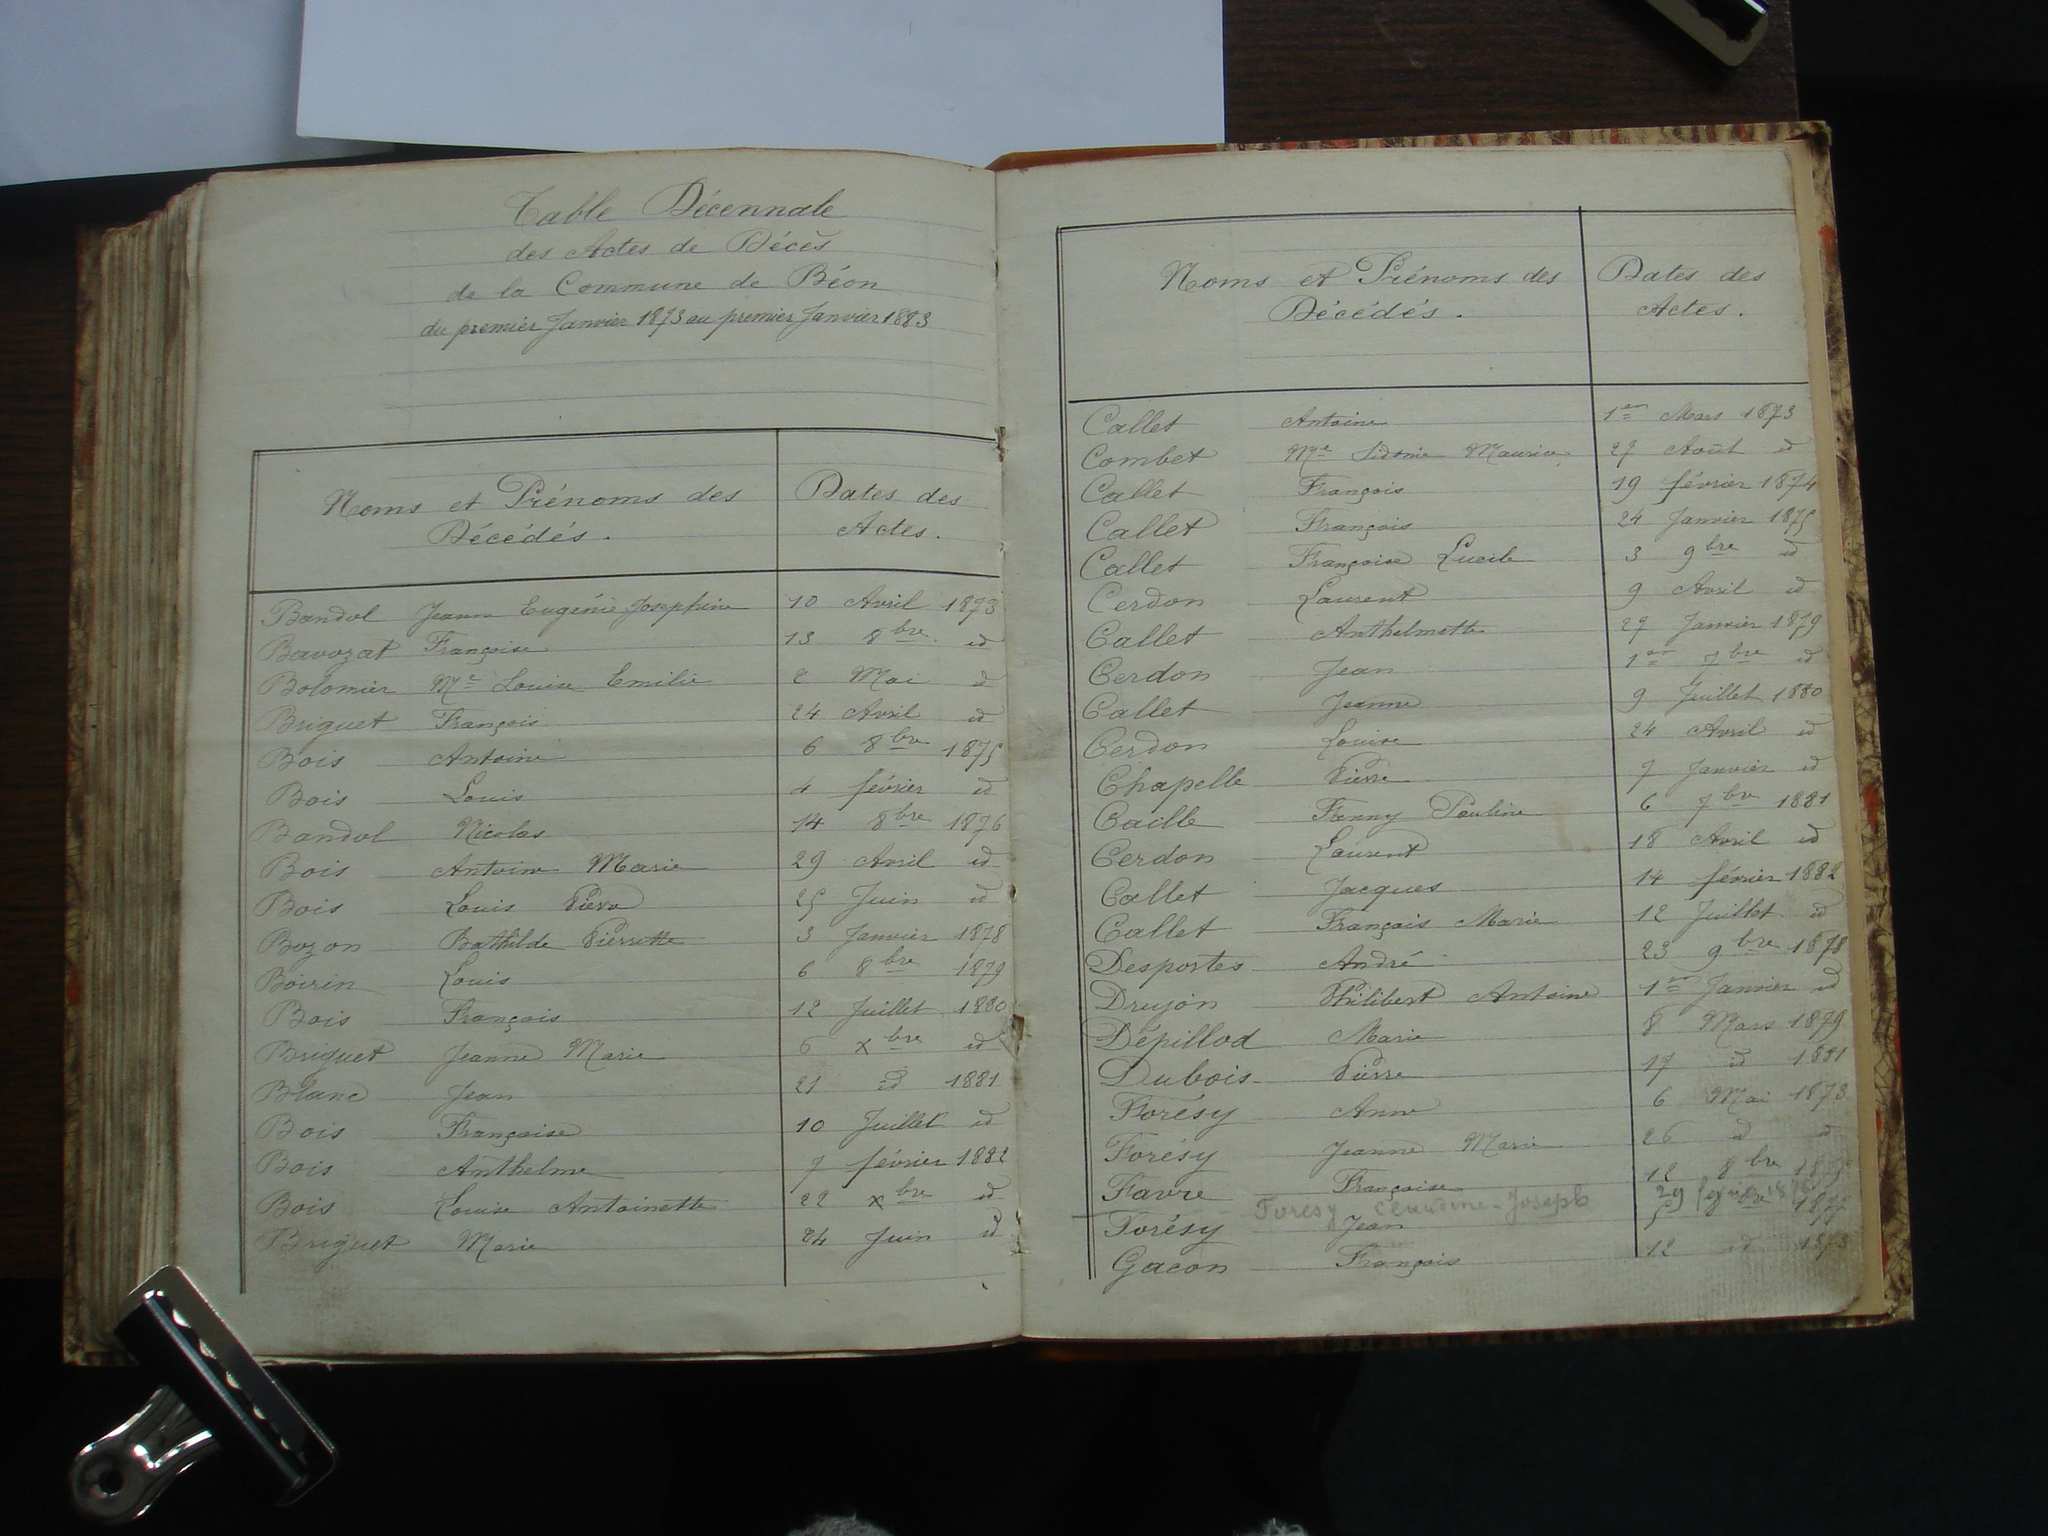 Table Décennale
des Actes de Décès
de la Commune de Béon
du premier Janvier 1873 au premier Janvier 1883
Noms et Prénoms des Dates des
Décédés. Actes.
Bandol Jeanne Eugénie Josephine 10 Avril 1873
Bavozat Françoise 13 8bre id
Bolomier Me Louise Emilie 2 Mai id
Briguet François 24 Avril id
Bois Antoine 6 8bre 1875
Bois Louis 4 février id
Bandol Nicolas 14 8bre 1876
Bois Antoine Marie 29 Avril id
Bois Louis Pierre 25 Juin id
Bozon Bathilde Pierrette 3 Janvier 1878
Boirin Louis 6 8bre 1879
Bois François 12 Juillet 1880
Briguet Jeanne Marie 6 xbre id
Blanc Jean 21 id 1881
Bois Françoise 10 Juillet id
Bois Anthelme 7 février 1882
Bois Louise Antoinette 22 xbre id
Briguet Marie 24 Juin id
Noms et Prénoms des Dates des
Décédés. Actes.
Callet Antoine 1er Mars 1873
Combet Me Sidonie Maurice 27 Août id
Callet François 19 février 1874
Callet François 24 Janvier 1875
Callet Françoise Lucile 3 9bre id
Cerdon Laurent 9 Avril id
Callet Anthelmette 27 Janvier 1879
Cerdon Jean 1er 7bre id
Callet Jeanne 9 Juillet 1880
Cerdon Louise 24 Avril id
Chapelle Pierre 7 Janvier id
Caille Fanny Pauline 6 7bre 1881
Cerdon Laurent 18 Avril id
Callet Jacques 14 février 1882
Callet François Marie 12 Juillet id
Desportes André 23 9bre 1878
Drujon Philibert Antoine 1er Janvier id
Dépillod Marie 8 Mars 1879
Dubois Pierre 17 id 1881
Forésy Anne 6 Mai 1873
Forésy Jeanne Marie 26 id id
Favre Françoise 12 8bre
Foresy Joseph 29
Forésy Jean 5 1877
Gacon François 12 id 1873